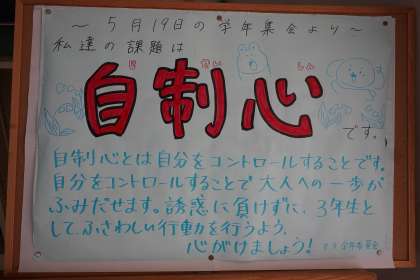 ～5月19日の学年集会より～
私達の課題は
じ せい しん
自制心
です。
自制心とは自分をコントロールすることです。
自分をコントロールすることで大人への一歩が
ふみだせます。誘惑に負けずに、3年生と
して、ふさわしい行動を行うよう、
心がけましょう!
学年委員会